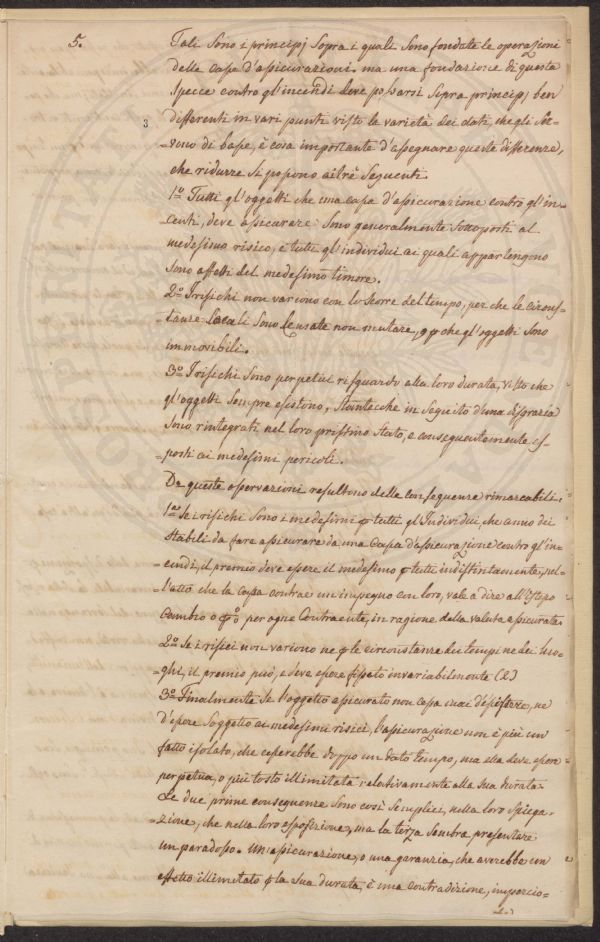 5.
Tali sono i principj sopra i quali sono fondate le operazioni
delle case d'assicurazioni. ma una fondazione di questa
specce contro gl'incendi deve possarsi sopra principj ben
3
differenti in vari punti visto la varietà dei dati, che gli ser-
-vono di base, è cosa importante d'assegnare queste differenze,
che ridurre si possono ai trè seguenti.
1º Tutti gl'oggetti che una casa d'assicurazione contro gl'in-
cendi, deve assicurare sono generalmente sottoposti al
medesimo risico, e tutti gl'individui ai quali appartengono
sono affetti del medesimo timore.
2º I risichi non variono con lo scorre del tempo, per che le circons-
tanze locali sono le usate non mutare, e che gl'oggetti sono
immobili.
3º I risichi sono perpetui risguardo alla loro durata, visto che
gl'oggetti sempre esistono, stantecche in seguito d'una disgrazia
sono rintegrati nel loro pristino stato, e conseguentemente es-
posti ai medesimi pericoli.
Da queste osservazioni resultono delle consequenze rimarcabili;
1º se i risichi sono i medesimi p tutti gl'Individui che anno dei
stabili da fare assicurare da una Casa d'assicurazione contro gl'in-
-cendi, il premio deve essere il medesimo p tutti indistintamente, nel-
l'atto che la casa contrae un impegno con loro, vale a dire all'istesso
cambio o per ogne Contraente, in ragione della valuta assicurata
2º se i risici non variono ne p le circonstanze dei tempi ne dei luo-
ghi, il premio può, e deve essere fissato invariabilmente
3º Finalmente se l'oggetto assicurato non cassa mai d'esistere, ne
d'essere soggetto ai medesimi risici, l'assicurazione non è più un
fatto isolato, che cesserebbe doppo un dato tempo, ma ella deve essere
perpetua, o più tosto illimitata relativamente alla sua durata.
Le due prime consequenze sono così semplici, nella loro spiega-
zione, che nella loro esposizione, ma la terza sembra presentare
un paradosso. Un'assicurazione, o una garanzia, che averebbe un
effetto illimitato p la sua durata, è una contradizione, impercio-